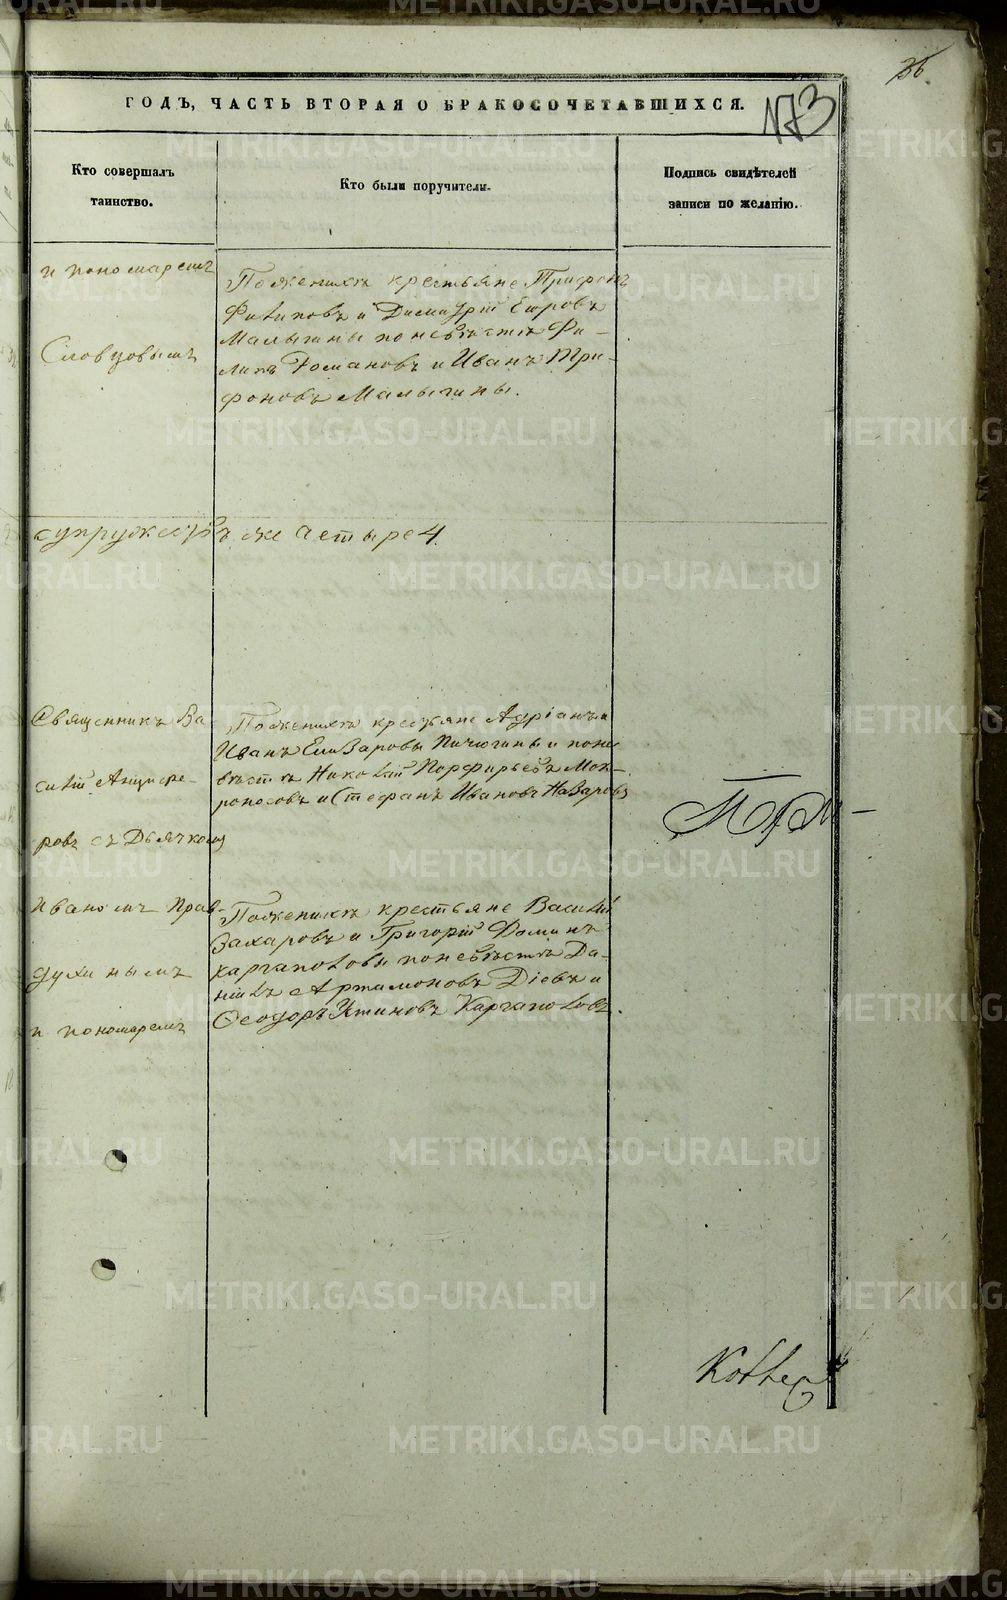 36.
173
ГОДЪ, ЧАСТЬ ВТОРАЯ О БРАКОСОЧЕТАВШИХСЯ.
Кто совершалъ
таинство.
Кто были поручители.
Подпись свидѣтелей
записи по желанію.
и пономаремъ
Словцовымъ
Поженихѣ крестьяне Трифонъ
Филиповъ и Димитрій Егоровъ
Малыгины по невѣстѣ Фи-
липъ Романовъ и Иванъ Три-
фоновъ Малыгины.
супружествъ же четыре 4.
Священникъ Ва-
силій Анцыфе-
ровъ съ Дьячкомъ
Иваномъ Прав-
духинымъ
и пономаремъ
Поженихѣ крестьяне Адріанъ и
Иванъ Елизаровы Пичюгины и поне-
вѣстѣ Николай Порфирьевъ Мок-
роносовъ и Стефанъ Ивановъ Назаровъ
Поженихѣ крестьяне Василій
Захаровъ и Григорій Фоминъ
Каргаполовы по невѣстѣ Да-
ніилъ Артамоновъ Діевъ и
Ѳеодоръ Устиновъ Каргаполовъ.
METRIKI.GASO-URAL.RU